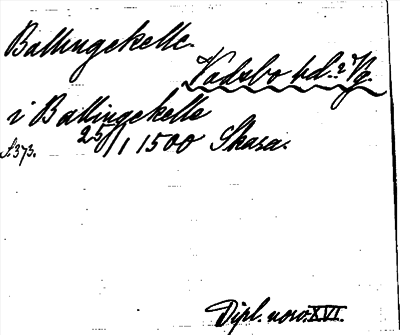 Ballingekelle.
Vadsbo hd.? Vg.
i Ballingekelle
S.373. 25/1 1500 Skara.
Dipl. norv. XVI.